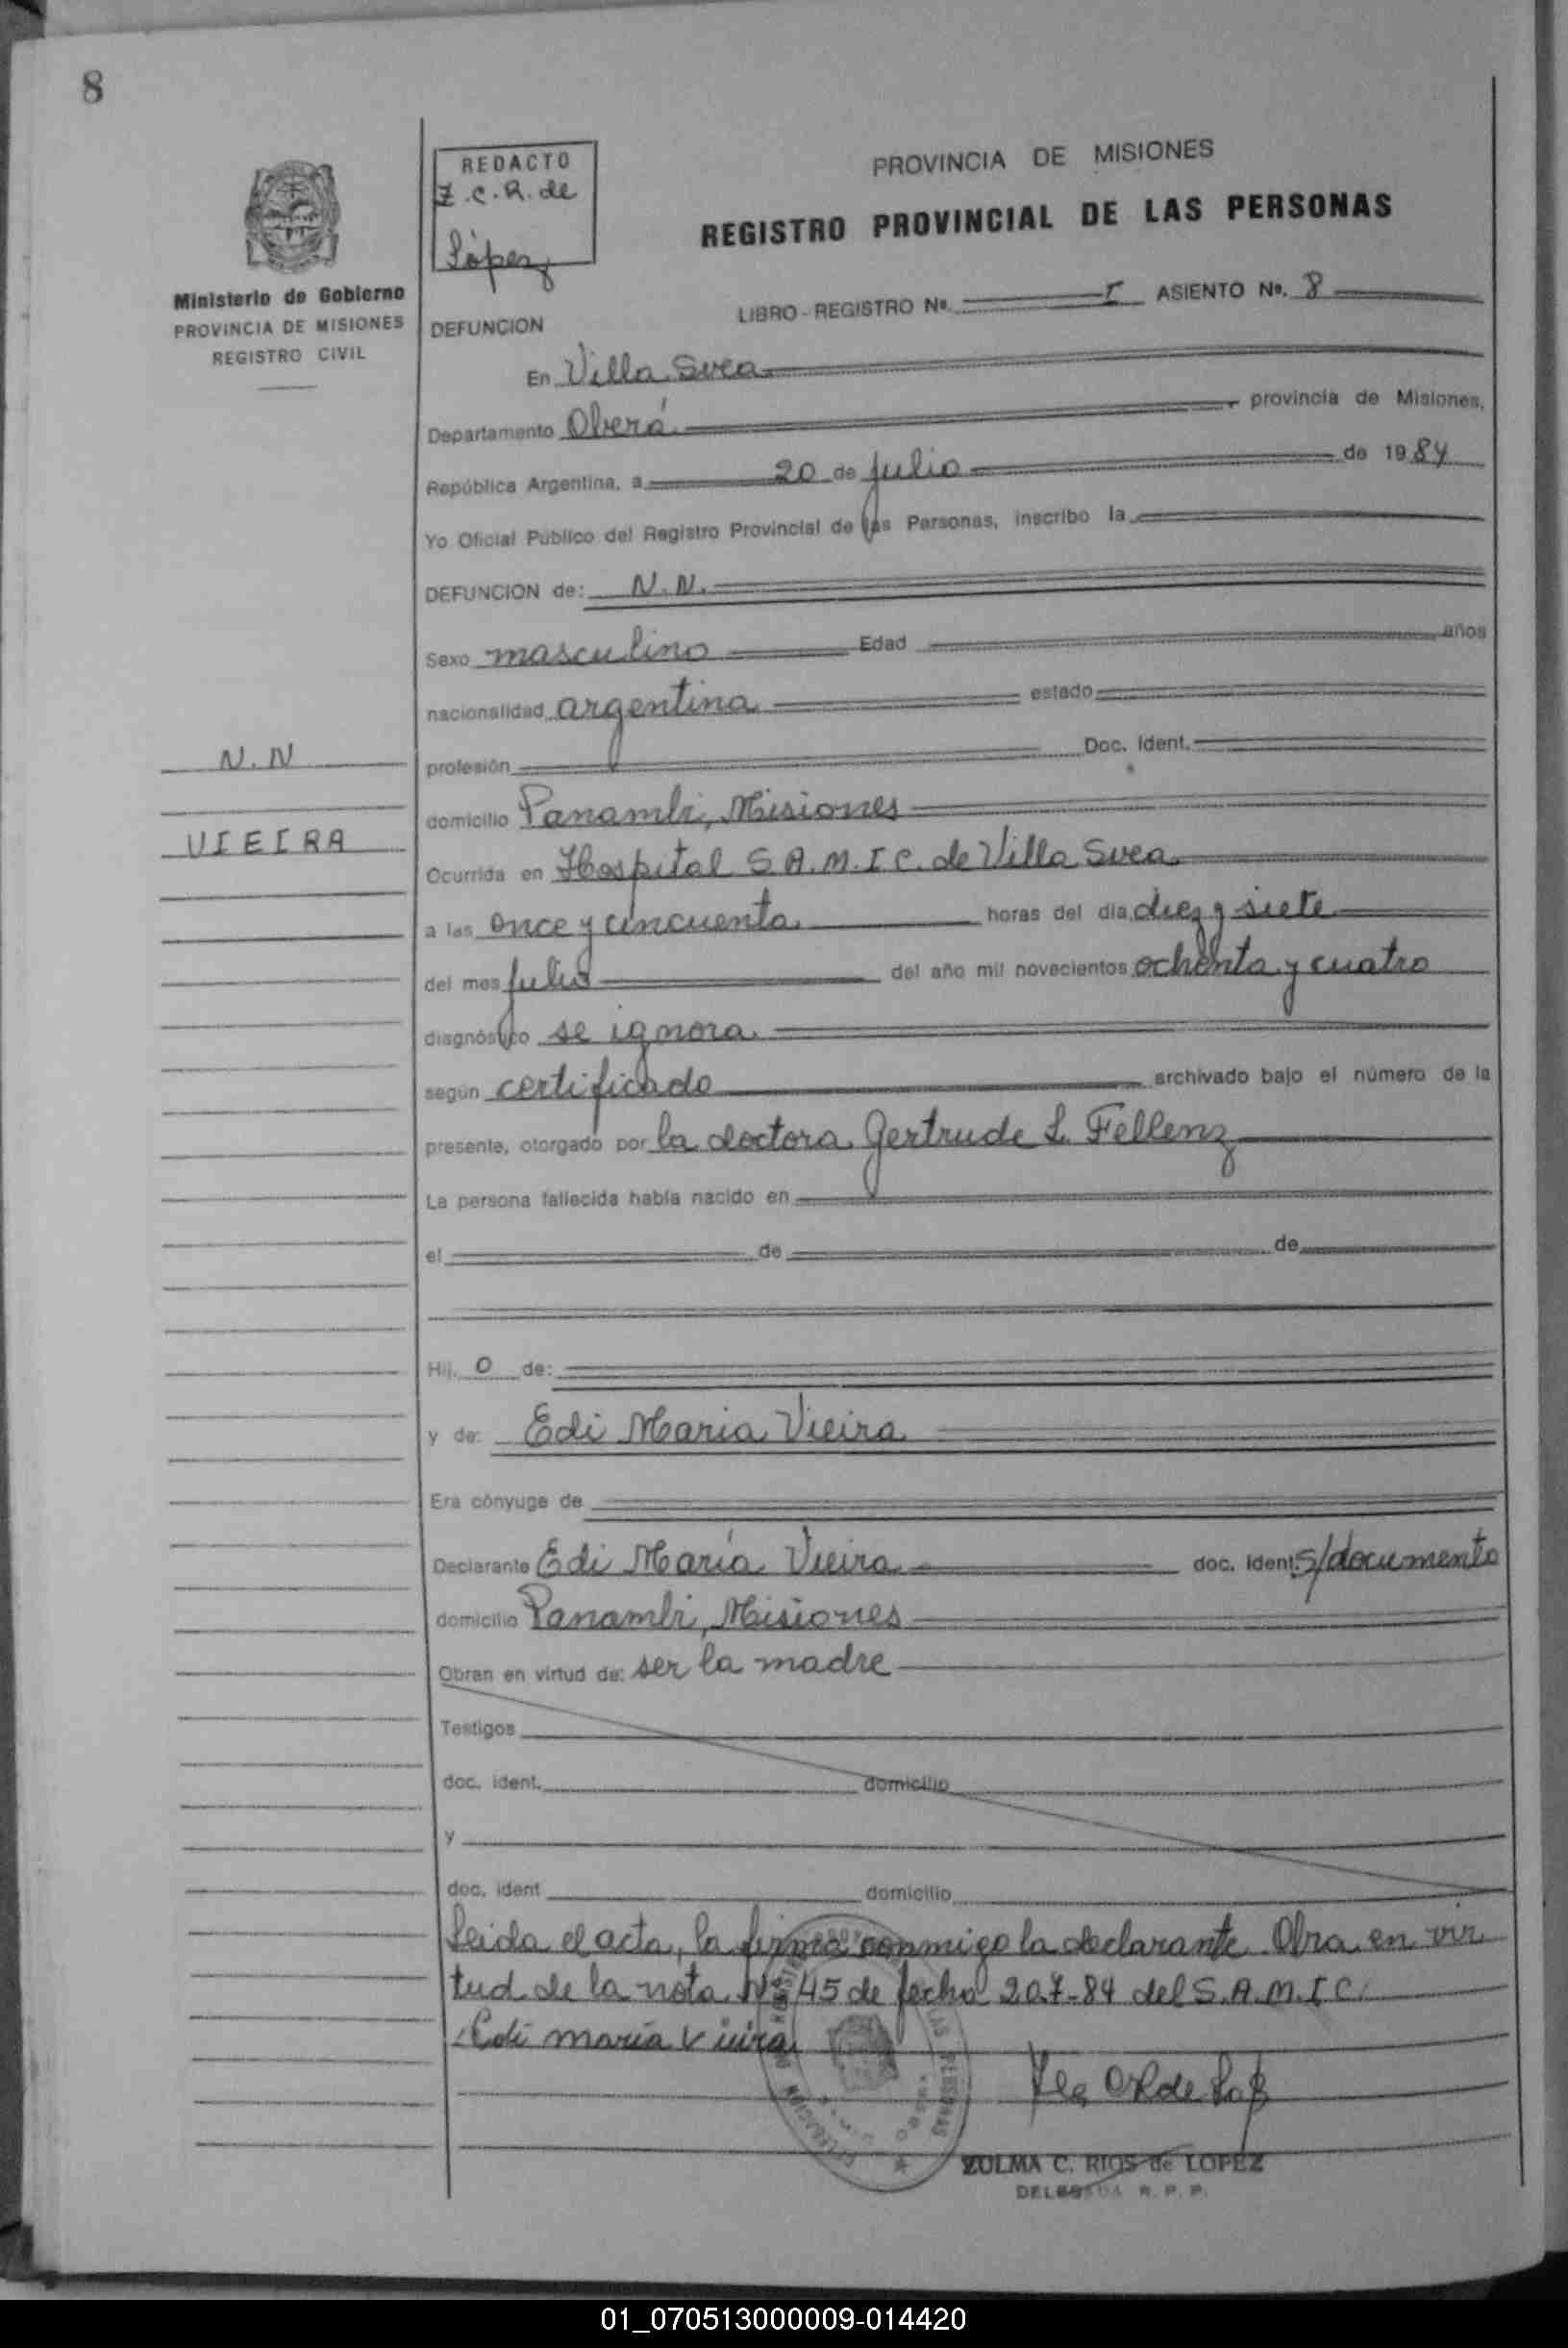 8
REDACTO
Z.C.R. de
López
PROVINCIA DE MISIONES
REGISTRO PROVINCIAL DE LAS PERSONAS
Ministerio de Gobierno
PROVINCIA DE MISIONES
REGISTRO CIVIL
LIBRO - REGISTRO Nº. I ASIENTO Nº. 8
DEFUNCION
En Villa Svea
Departamento Oberá provincia de Misiones,
República Argentina, a 20 de julio de 1984
Yo Oficial Público del Registro Provincial de las Personas, inscribo la
DEFUNCION de: N.N.
Sexo masculino Edad años
nacionalidad argentina estado
N.N
profesión Doc. Ident.
domicilio Panambi, Misiones
VIEIRA
Ocurrida en Hospital S.A.M.I.C. de Villa Svea
a las once y cincuenta horas del día diez y siete
del mes julio del año mil novecientos ochenta y cuatro
diagnóstico se ignora
según certificado archivado bajo el número de la
presente, otorgado por la doctora Gertrude L. Fellenz
La persona fallecida había nacido en
el de de
Hij o de:
y de: Edi Maria Vieira
Era cónyuge de
Declarante Edi María Vieira doc. ident. s/documento
domicilio Panambi, Misiones
Obran en virtud de: ser la madre
Testigos
doc. ident. domicilio
y
doc. ident domicilio
Leida el acta, la firma conmigo la declarante. Obra en vir
tud de la nota Nº 45 de fecha 20.7-84 del S.A.M.I.C.
Edi maria Vieira
ZULMA C. RIOS de LOPEZ
DELEGADA R. P. P.
01_070513000009-014420